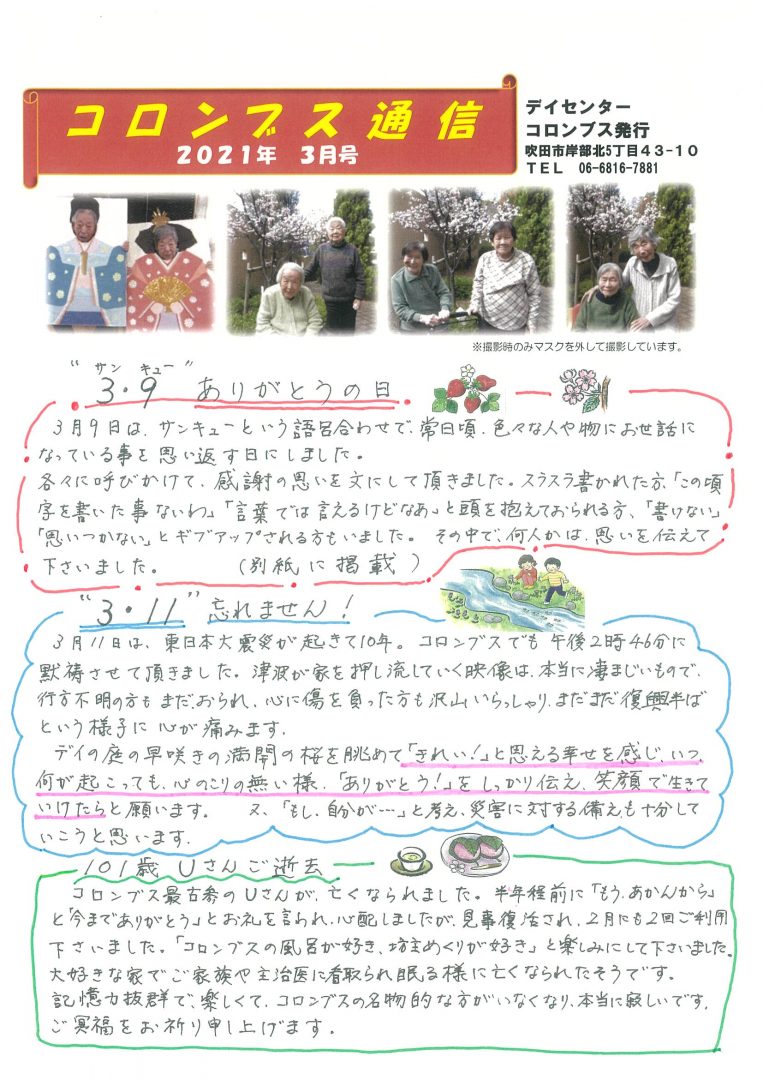 コロンブス通信
2021年 3月号
デイセンター
コロンブス発行
吹田市岸部北5丁目43-10
TEL 06-6816-7881
※撮影時のみマスクを外して撮影しています。
“サン キュー”
3・9 ありがとうの日
3月9日は、サンキューという語呂合わせで、常日頃、色々な人や物にお世話に
なっている事を思い返す日にしました。
各々に呼びかけて、感謝の思いを文にして頂きました。スラスラ書かれた方、「この頃
字を書いた事ないわ」「言葉では言えるけどなあ」と頭を抱えておられる方、「書けない」
「思いつかない」とギブアップされる方もいました。その中で、何人かは、思いを伝えて
下さいました。 (別紙に掲載)
“3・11” 忘れません!
3月11日は、東日本大震災が起きて10年。コロンブスでも午後2時46分に
黙祷させて頂きました。津波が家を押し流していく映像は、本当に凄まじいもので、
行方不明の方もまだ、おられ、心に傷を負った方も沢山いらっしゃり、まだまだ復興半ば
という様子に心が痛みます。
デイの庭の早咲きの満開の桜を眺めて「きれい!」と思える幸せを感じ、いつ、
何が起こっても、心のこりの無い様、「ありがとう!」をしっかり伝え、笑顔で生きて
いけたらと願います。 又、「もし、自分が…」と考え、災害に対する備えも十分して
いこうと思います。
101歳 Uさんご逝去
コロンブス最古参のUさんが、亡くなられました。半年程前に「もう、あかんから」
と「今までありがとう」とお礼を言われ、心配しましたが、見事復活され、2月にも2回ご利用
下さいました。「コロンブスの風呂が好き、坊主めくりが好き」と楽しみにして下さいました。
大好きな家でご家族や主治医に看取られ眠る様に亡くなられたそうです。
記憶力抜群で、楽しくて、コロンブスの名物的な方がいなくなり、本当に寂しいです。
ご冥福をお祈り申し上げます。